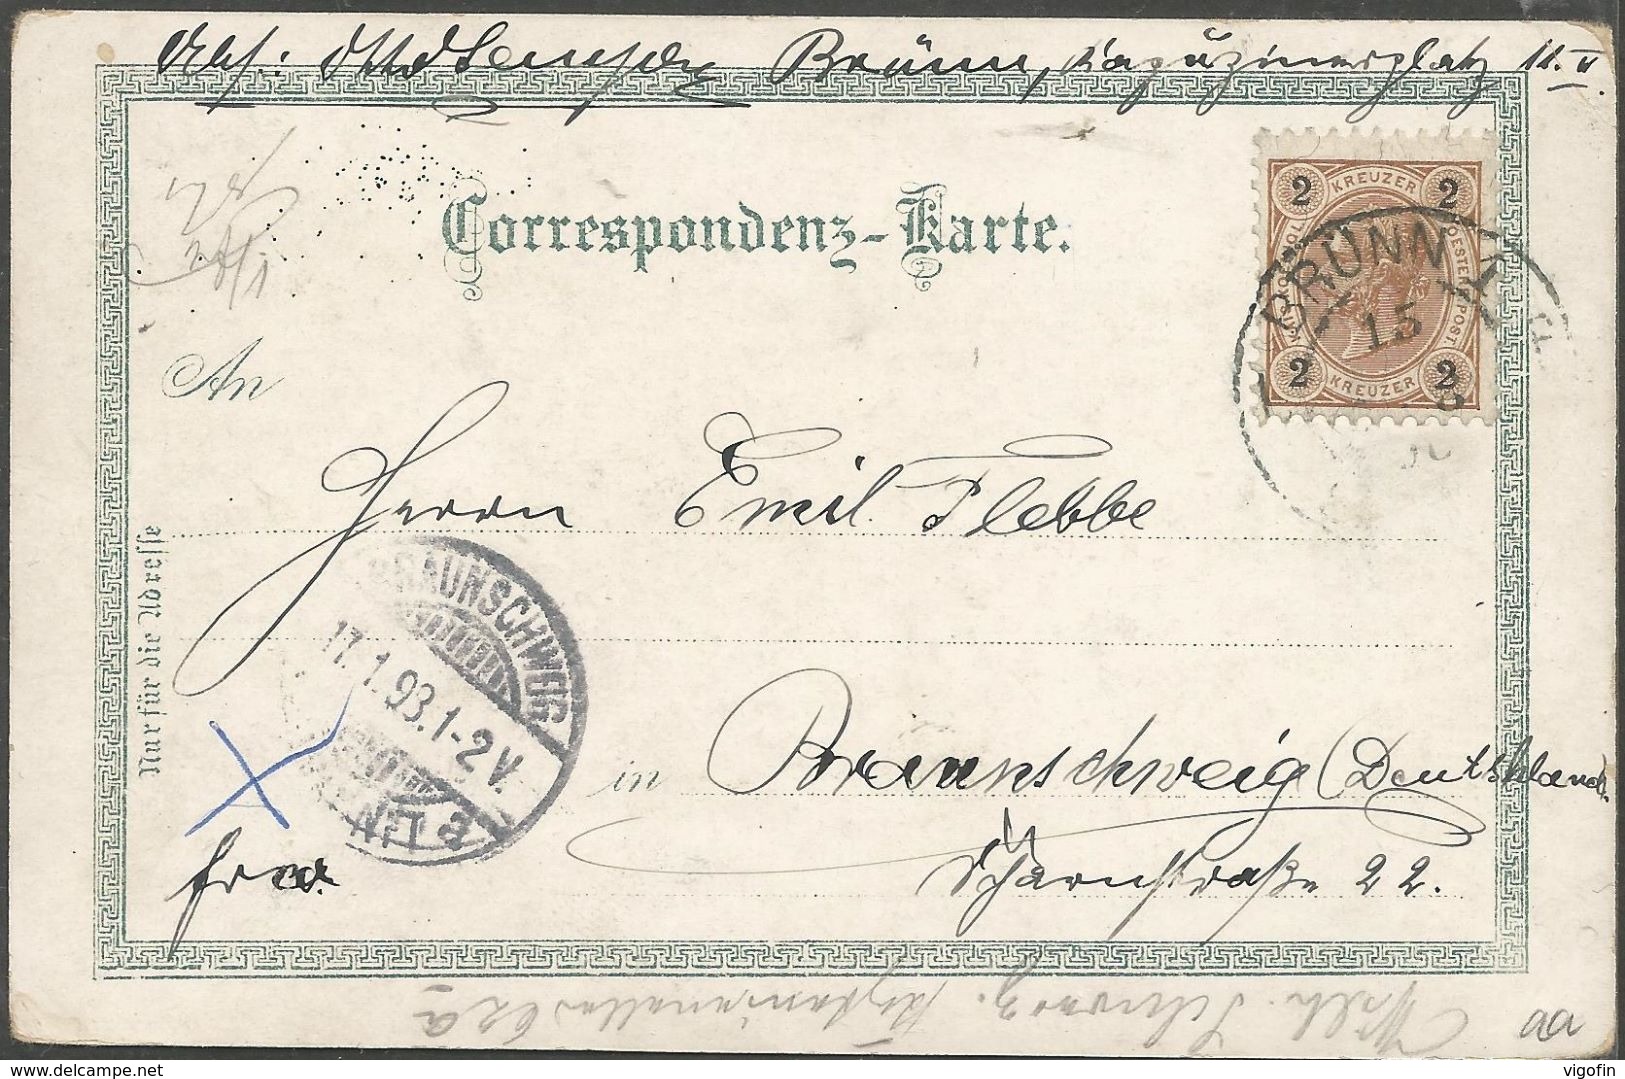 Abs: Brünn, Kapuzinerplatz 11. II.
Correspondenz-Karte.
2 KREUZER 2
KAIS. KOENIGL. OESTERR. POST
2 KREUZER 2
BRÜNN
15
An
Herrn Emil Plebbe
BRAUNSCHWEIG
17.1.93.1-2V.
a
in Braunschweig (Deutschland.
Scharnstraße 22.
Nur für die Adresse
Wilh. Schwarz.
aa
delcampe.net
vigofin